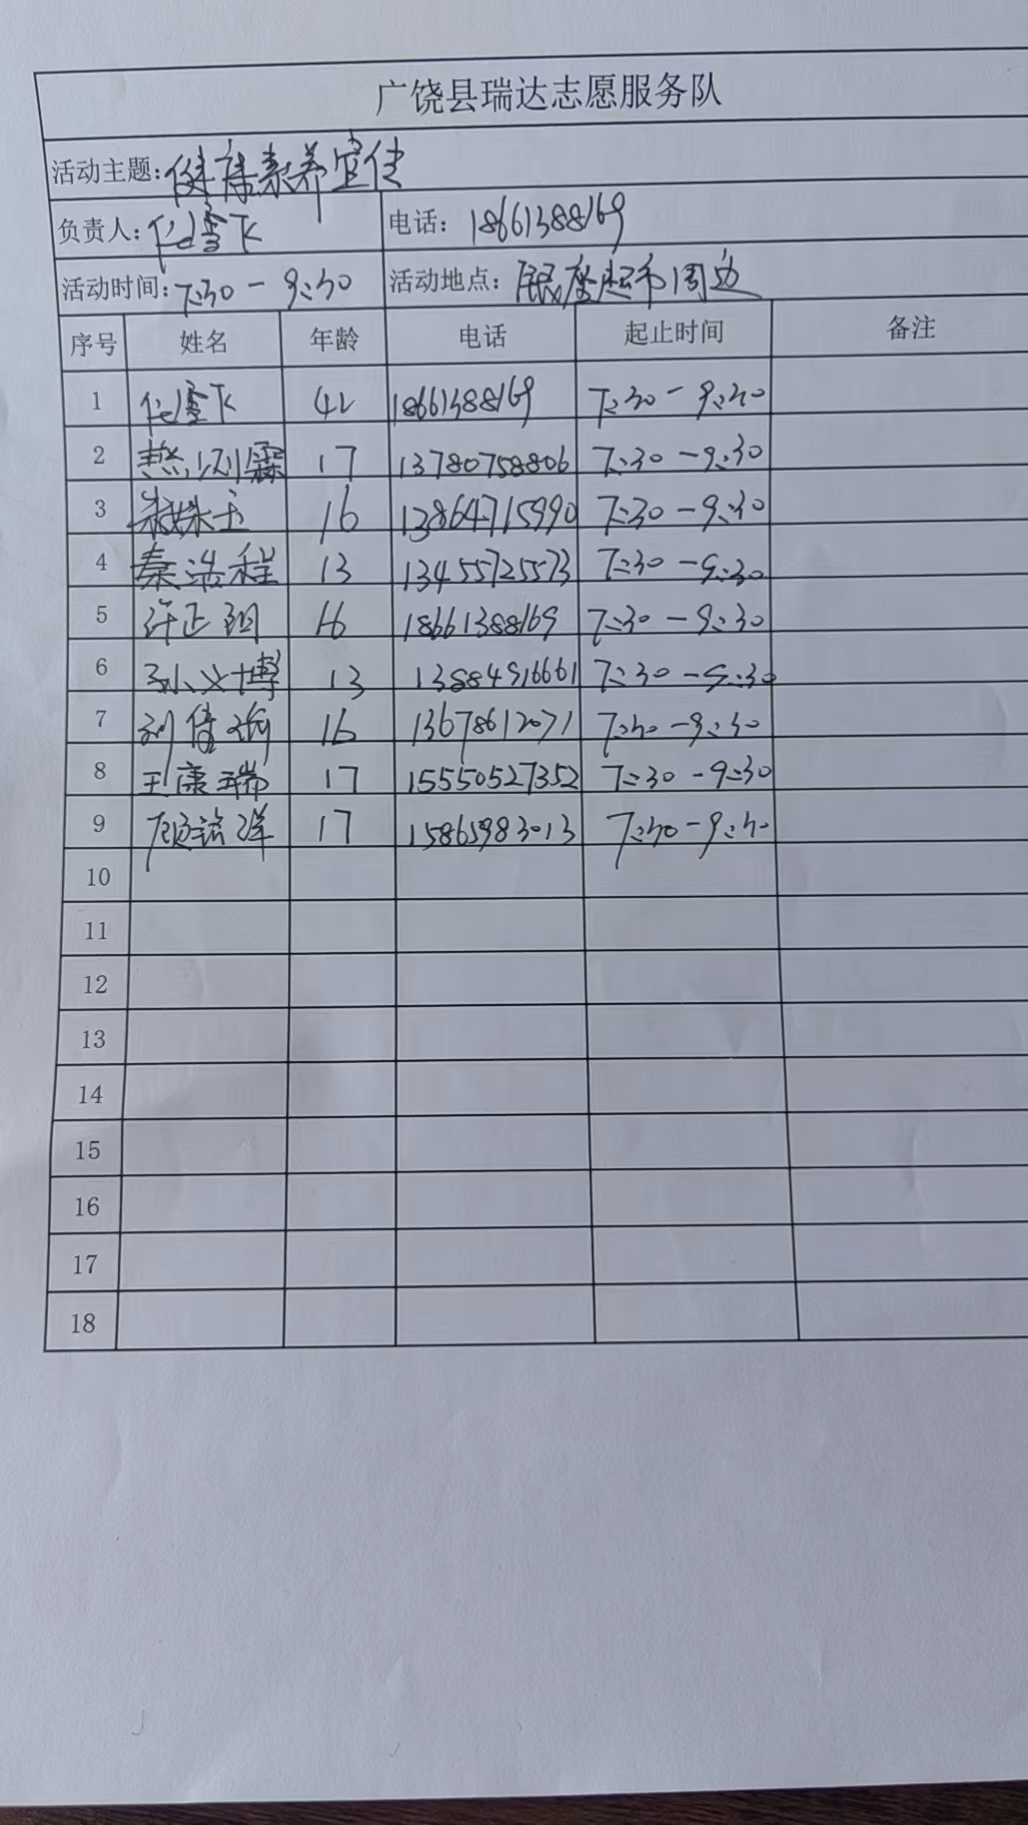 广饶县瑞达志愿服务队
活动主题:健康素养宣传
负责人:代雪飞 电话:18661388169
活动时间:7:30-9:30 活动地点:周边
序号 姓名 年龄 电话 起止时间 备注
1 代雪飞 42 18661388169 7:30-9:30
2 17 13780758806 7:30-9:30
3 16 13864715990 7:30-9:30
4 秦浩程 13 13455725573 7:30-9:30
5 许正 16 18661388169 7:30-9:30
6 孙义博 13 13884916661 7:30-9:30
7 刘倍 16 13678612071 7:30-9:30
8 王康瑞 17 15550527352 7:30-9:30
9 顾铭洋 17 15865983013 7:30-9:30
10
11
12
13
14
15
16
17
18